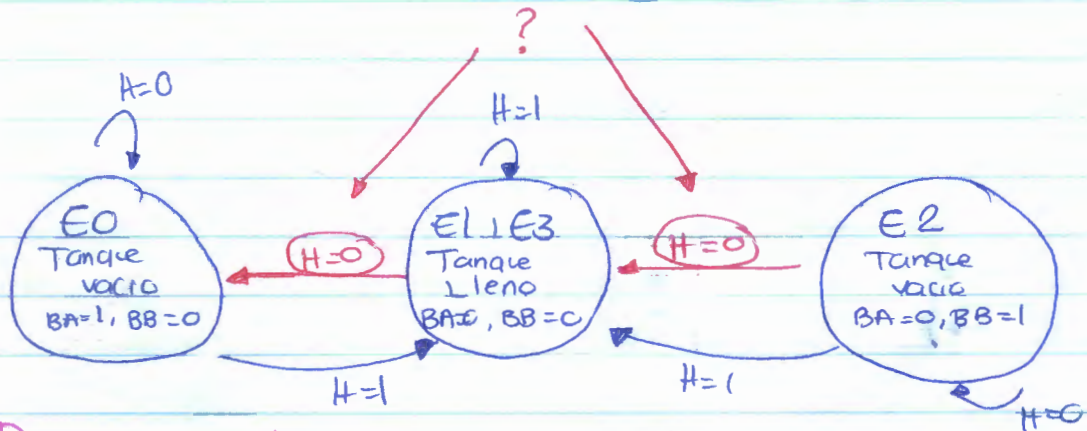 ?
H=0
H=1
E0
Tanque
vacio
BA=1, BB=0
H=0
E1⊥E3
Tanque
Lleno
BA=0, BB=0
H=0
E2
Tanque
vacio
BA=0, BB=1
H=1
H=1
H=0